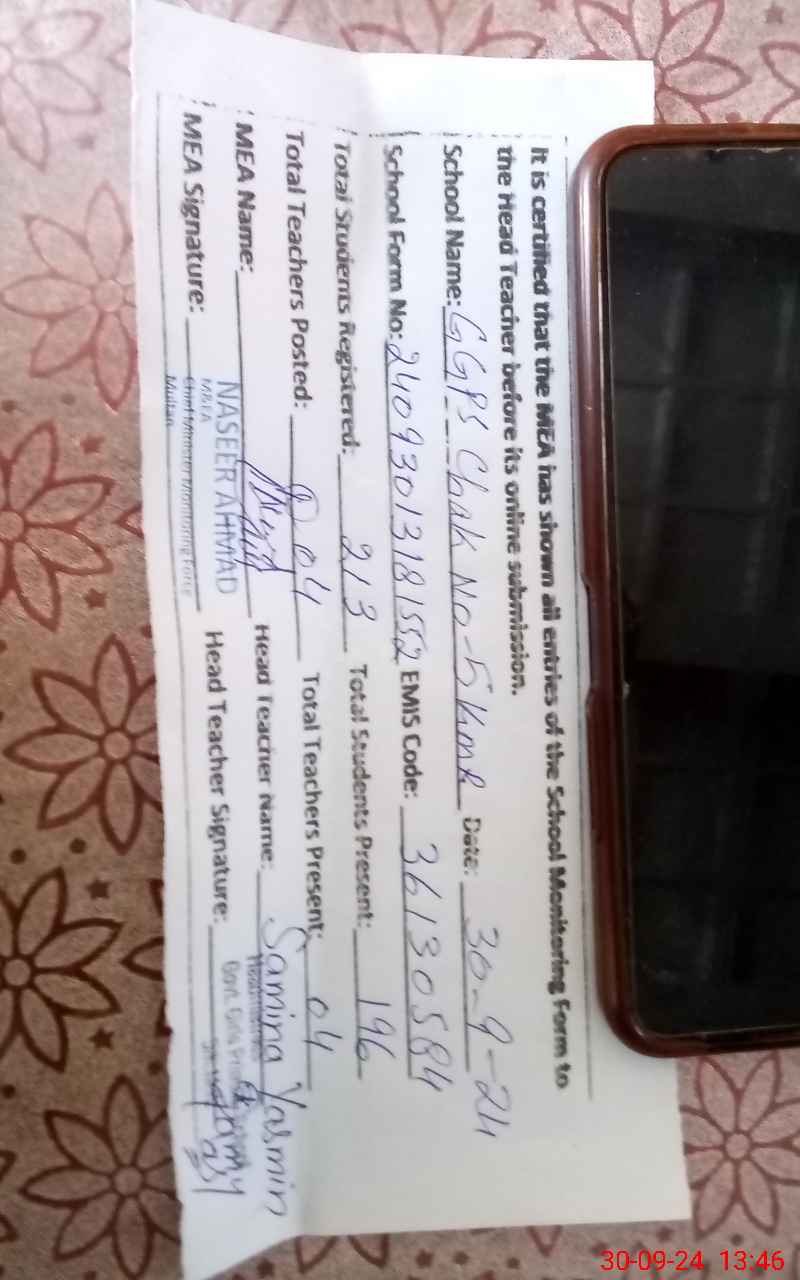 It is certified that the MEA has shown all entries of the School Monitoring Form to
the Head Teacher before its online submission.
School Name: GGPS Chak No-5 Kmr Date: 30-9-24
School Form No: 24093013181552 EMIS Code: 36130584
Total Students Registered: 213 Total Students Present: 196
Total Teachers Posted: 04 Total Teachers Present: 04
MEA Name: Head Teacher Name: Samina Yasmin
NASEER AHMAD
M&EA
Chief Minister Monitoring Force
Multan
Headmistress
Govt. Girls
MEA Signature: Head Teacher Signature:
30-09-24 13:46